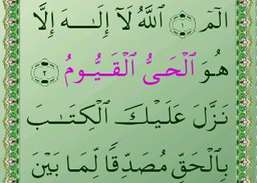 الٓمٓ ۝١ ٱللَّهُ لَآ إِلَـٰهَ إِلَّا
هُوَ ٱلْحَىُّ ٱلْقَيُّومُ ۝٢
نَزَّلَ عَلَيْكَ ٱلْكِتَـٰبَ
بِٱلْحَقِّ مُصَدِّقًا لِّمَا بَيْنَ